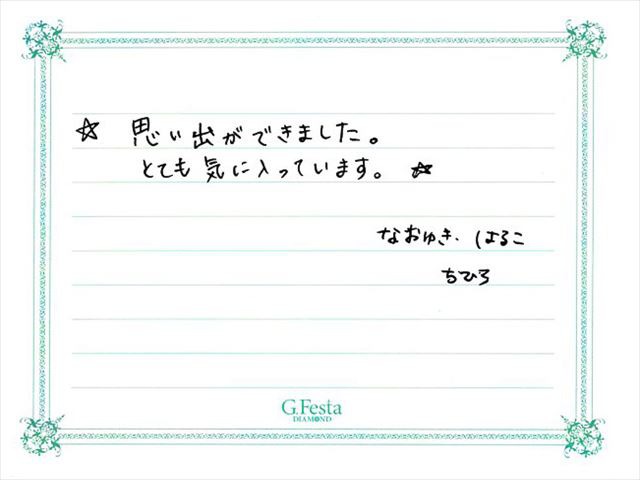 ☆ 思い出ができました。
とても気に入っています。 ☆
なおゆき. はるこ
ちひろ
G.Festa
DIAMOND